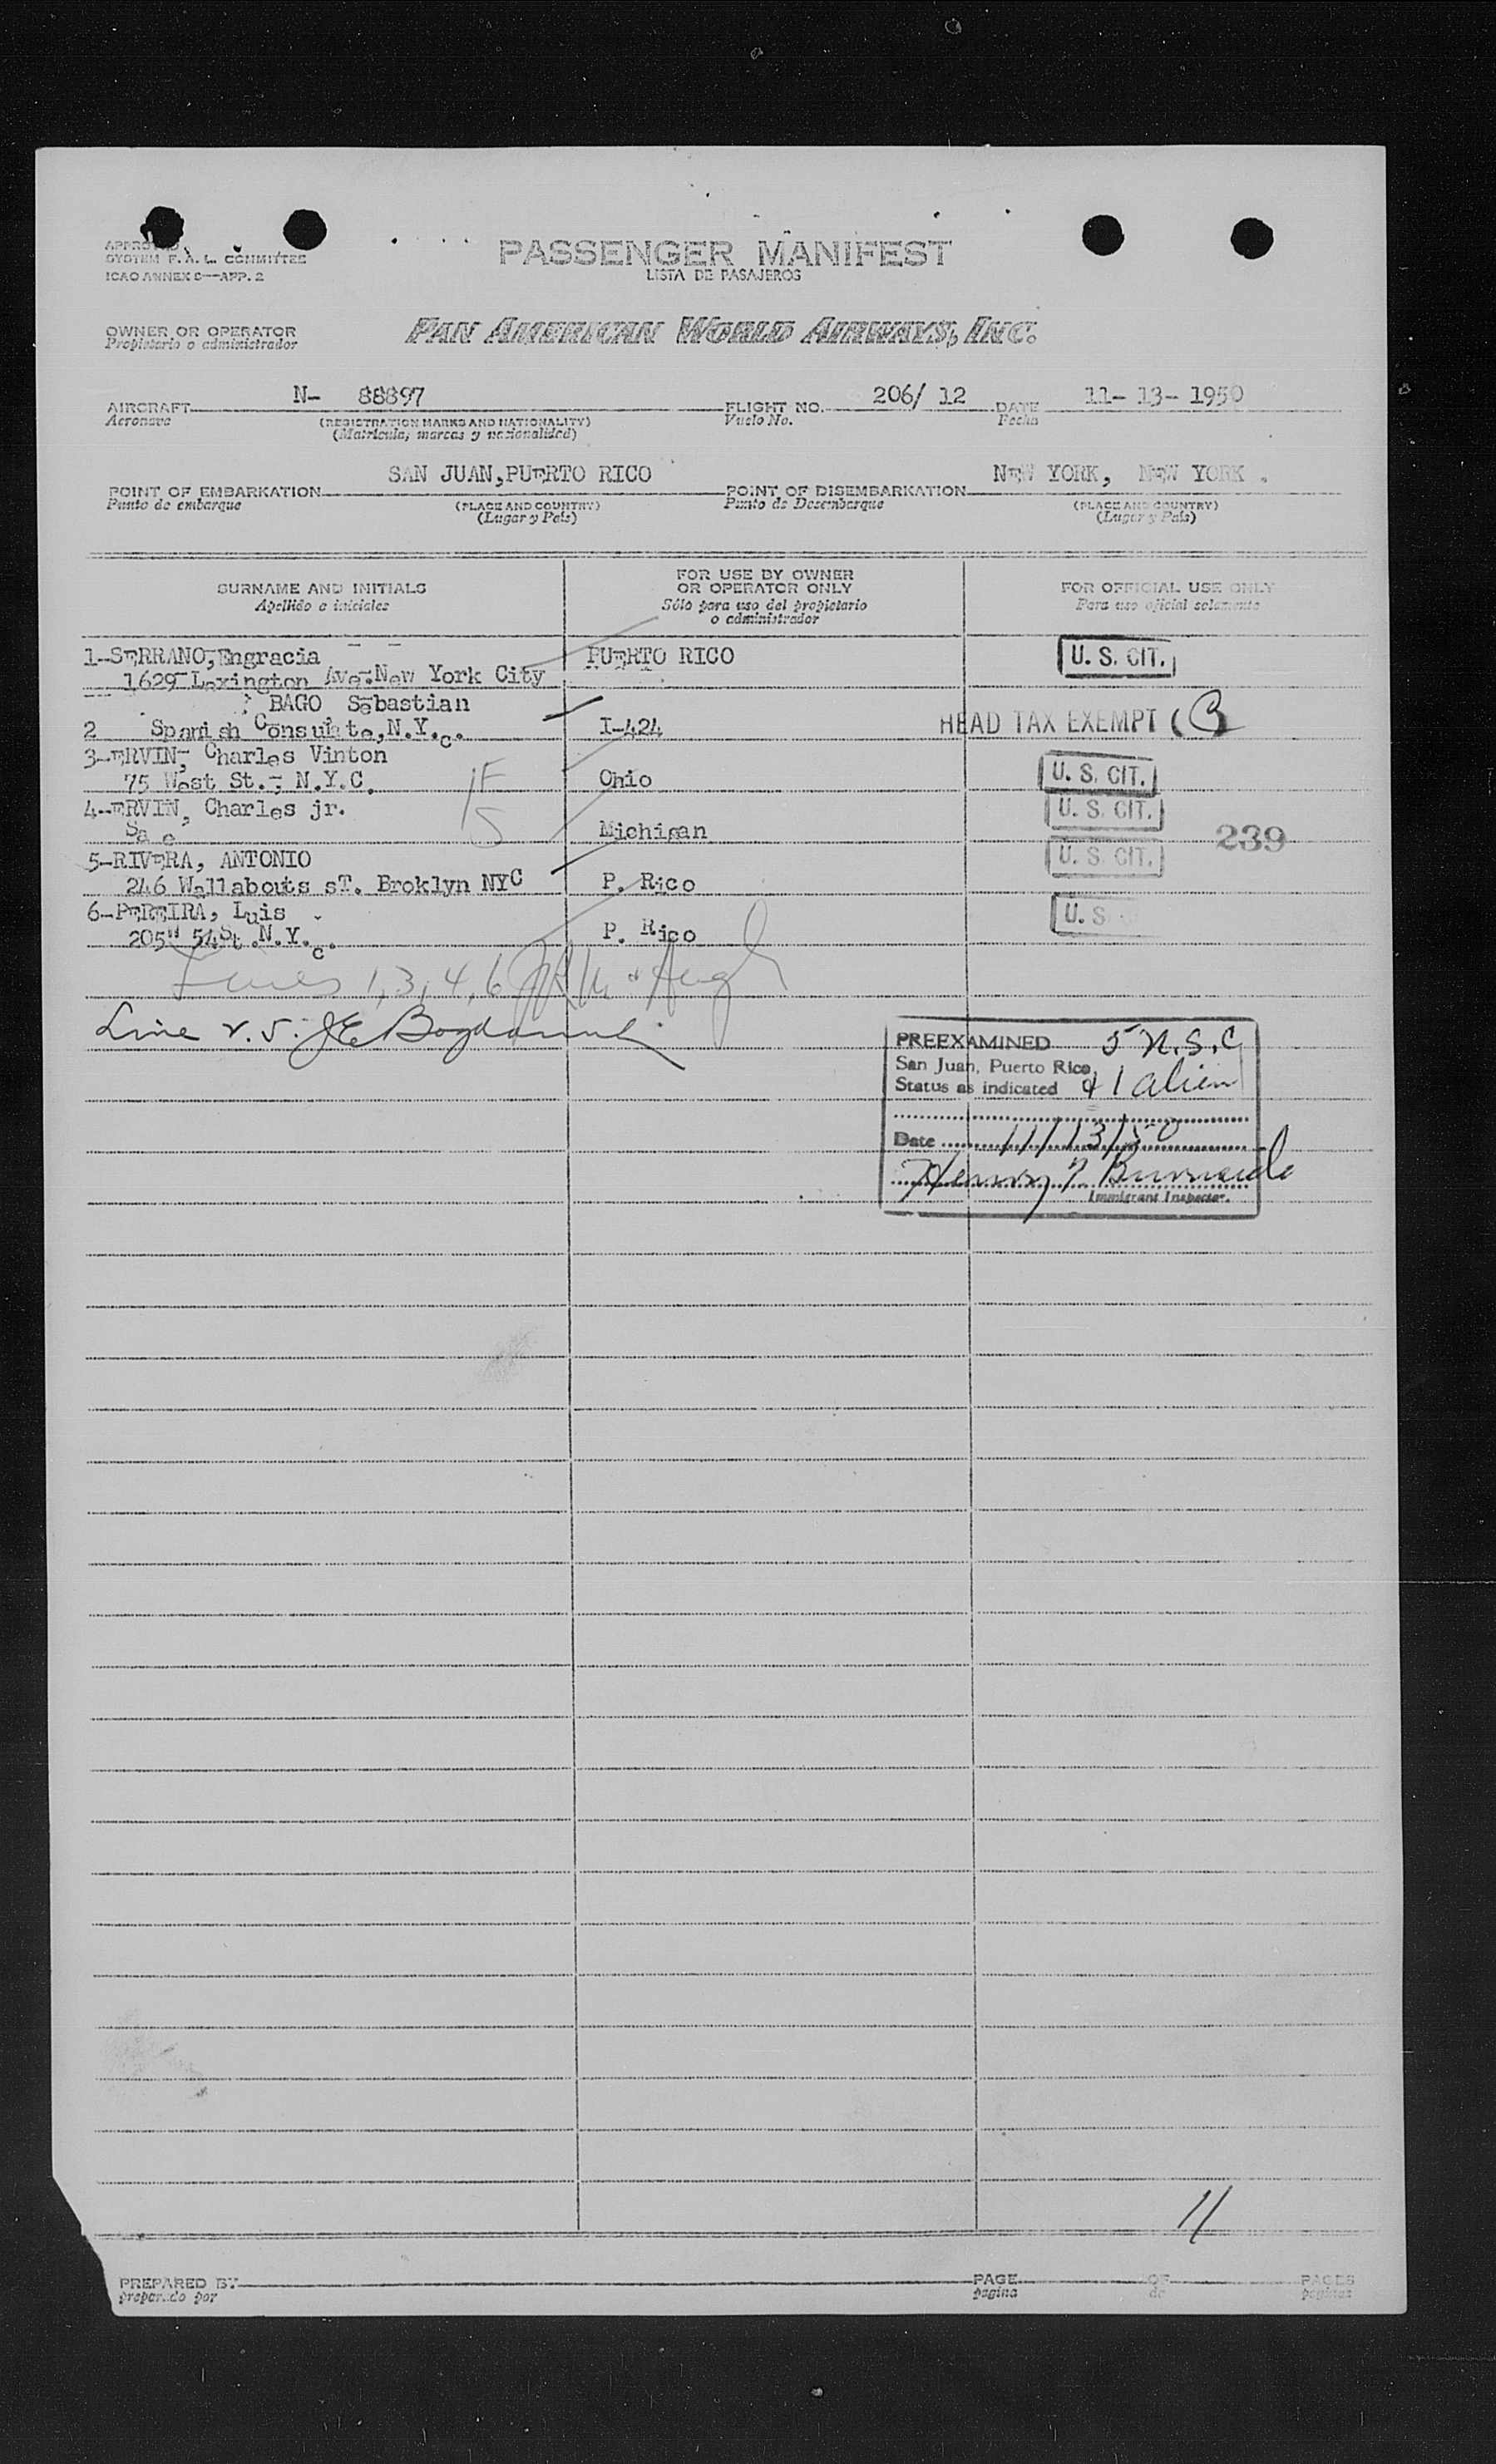 APPROVED
SYSTEM F. A. L. COMMITTEE
ICAO ANNEX 9—APP. 2
PASSENGER MANIFEST
LISTA DE PASAJEROS
OWNER OR OPERATOR
Propietario o administrador
PAN AMERICAN WORLD AIRWAYS, INC.
AIRCRAFT N- 88897 FLIGHT NO. 206/ 12 DATE 11- 13- 1950
Aeronave (REGISTRATION MARKS AND NATIONALITY) Vuelo No. Fecha
(Matricula, marcas y nacionalidad)
POINT OF EMBARKATION SAN JUAN,PUERTO RICO POINT OF DISEMBARKATION NEW YORK, NEW YORK .
Punto de embarque (PLACE AND COUNTRY) Punto de Desembarque (PLACE AND COUNTRY)
(Lugar y País) (Lugar y País)
SURNAME AND INITIALS FOR USE BY OWNER OR OPERATOR ONLY FOR OFFICIAL USE ONLY
Apellido e iniciales Sólo para uso del propietario o administrador Para uso oficial solamente
1-SERRANO,Engracia PUERTO RICO U. S. CIT.
1629 Lexington Ave.New York City
BAGO Sebastian
2 Spanish Consulate,N.Y.c. I-424 HEAD TAX EXEMPT
3-ERVIN, Charles Vinton
75 West St.- N.Y.C. Ohio U. S. CIT.
4-ERVIN, Charles jr. U. S. CIT.
Sa e Michigan 239
5-RIVERA, ANTONIO U. S. CIT.
246 Wallabouts sT. Broklyn NYC P. Rico
6-PEREIRA, Luis U. S.
205W 54St .N.Y.c. P. Rico
1F
5
Lines 1,3,4,6
Line 2.5.
PREEXAMINED 5 U.S.C
San Juan, Puerto Rico
Status as indicated & 1 alien
Date 11/13/50
Henry
Immigrant Inspector.
11
PREPARED BY PAGE OF PAGES
preparado por pagina de paginas